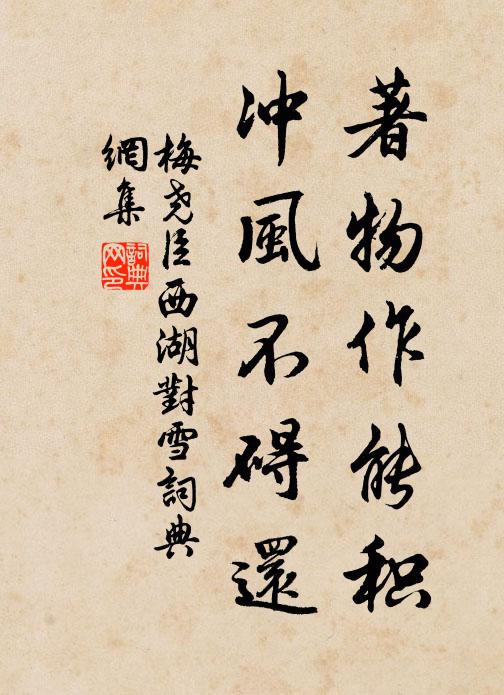 著物作能积
冲風不碍還
梅尧臣西湖對雪詞典
網集
詞典網印